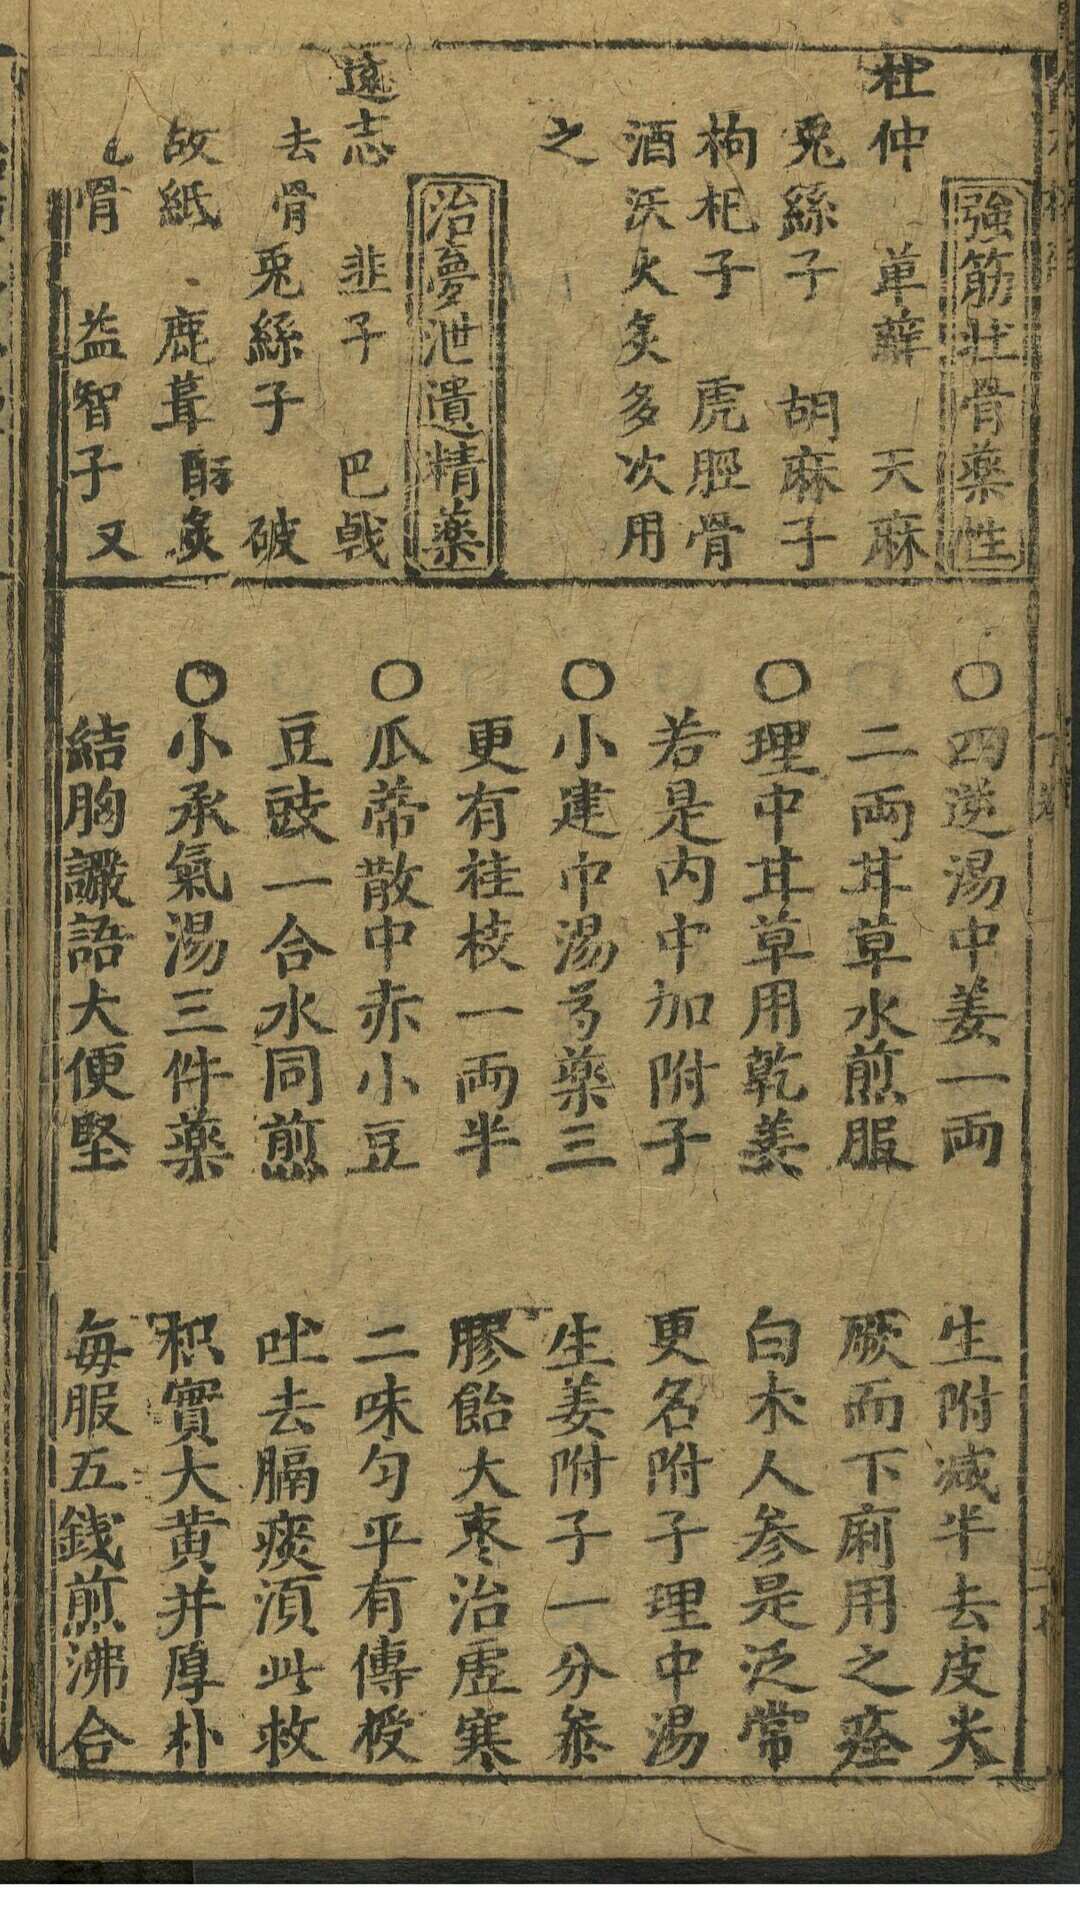 強筋壯骨薬性
杜仲 草薢 天麻
兎絲子 胡麻子
枸杞子 虎脛骨
酒沃火炙多次用
之
治夢泄遺精薬
遠志 韭子 巴戟
去骨兎絲子 破
故紙 鹿茸酥炙
骨 益智子 又
〇四逆湯中姜一両 生附减半去皮尖
二両甘草水煎服 厥而下痢用之痊
〇理中甘草用乾姜 白木人参是泛常
若是内中加附子 更名附子理中湯
〇小建巾湯芍薬三 生姜附子一分參
更有桂枝一両半 膠飴大枣治虚寒
〇瓜蒂散中赤小豆 二味匀平有傳授
豆豉一合水同煎 吐去膈痰須此救
〇小承氣湯三件薬 枳實大黄并厚朴
結胸讝語大便堅 每服五銭煎沸合